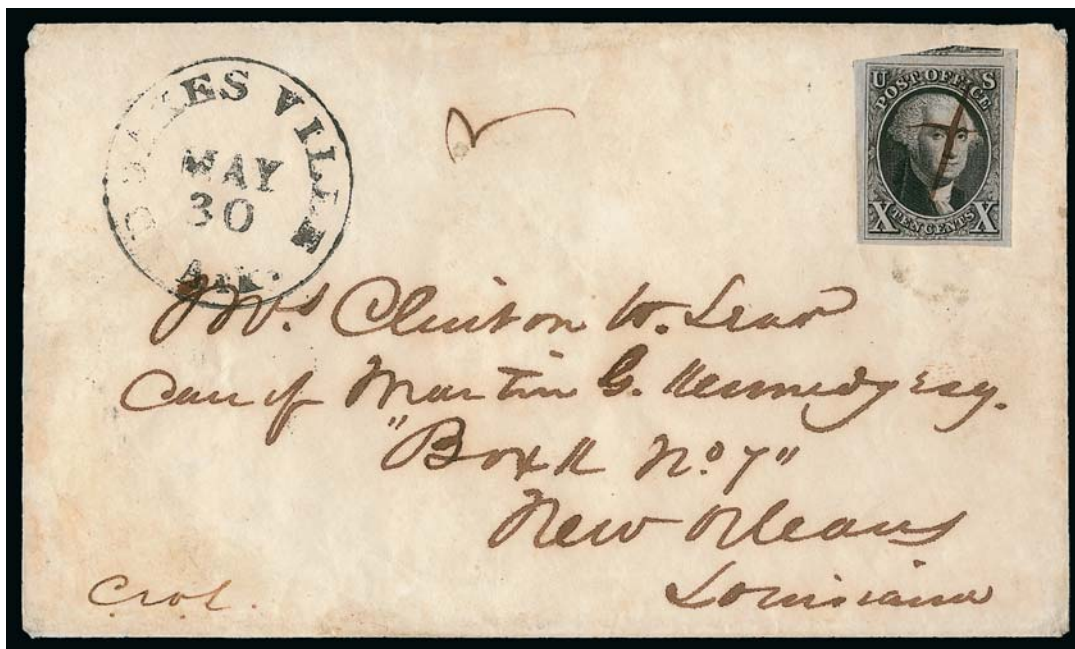 DRAKESVILLE
MAY
30
Ark.
U S
POST OFFICE
X TEN CENTS X
Mrs Clinton W. Lear
Care of Martin G. Kennedy Esq.
"Box No. 7"
New Orleans
Louisiana